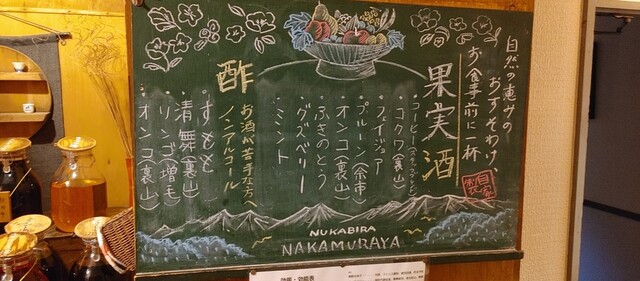 自然の恵みの
おすそわけ、
お食事前に一杯
果実酒
自家製
・コクワ(裏山)
・フェイジョア
・プルーン(余市)
・オンコ(裏山)
・ふきのとう
・グズベリー
・ミント
酢
お酒が苦手な方へ
ノンアルコール
・すもも
・清舞(裏山)
・リンゴ(増毛)
・オンコ(裏山)
NUKABIRA
NAKAMURAYA
効能・効能表